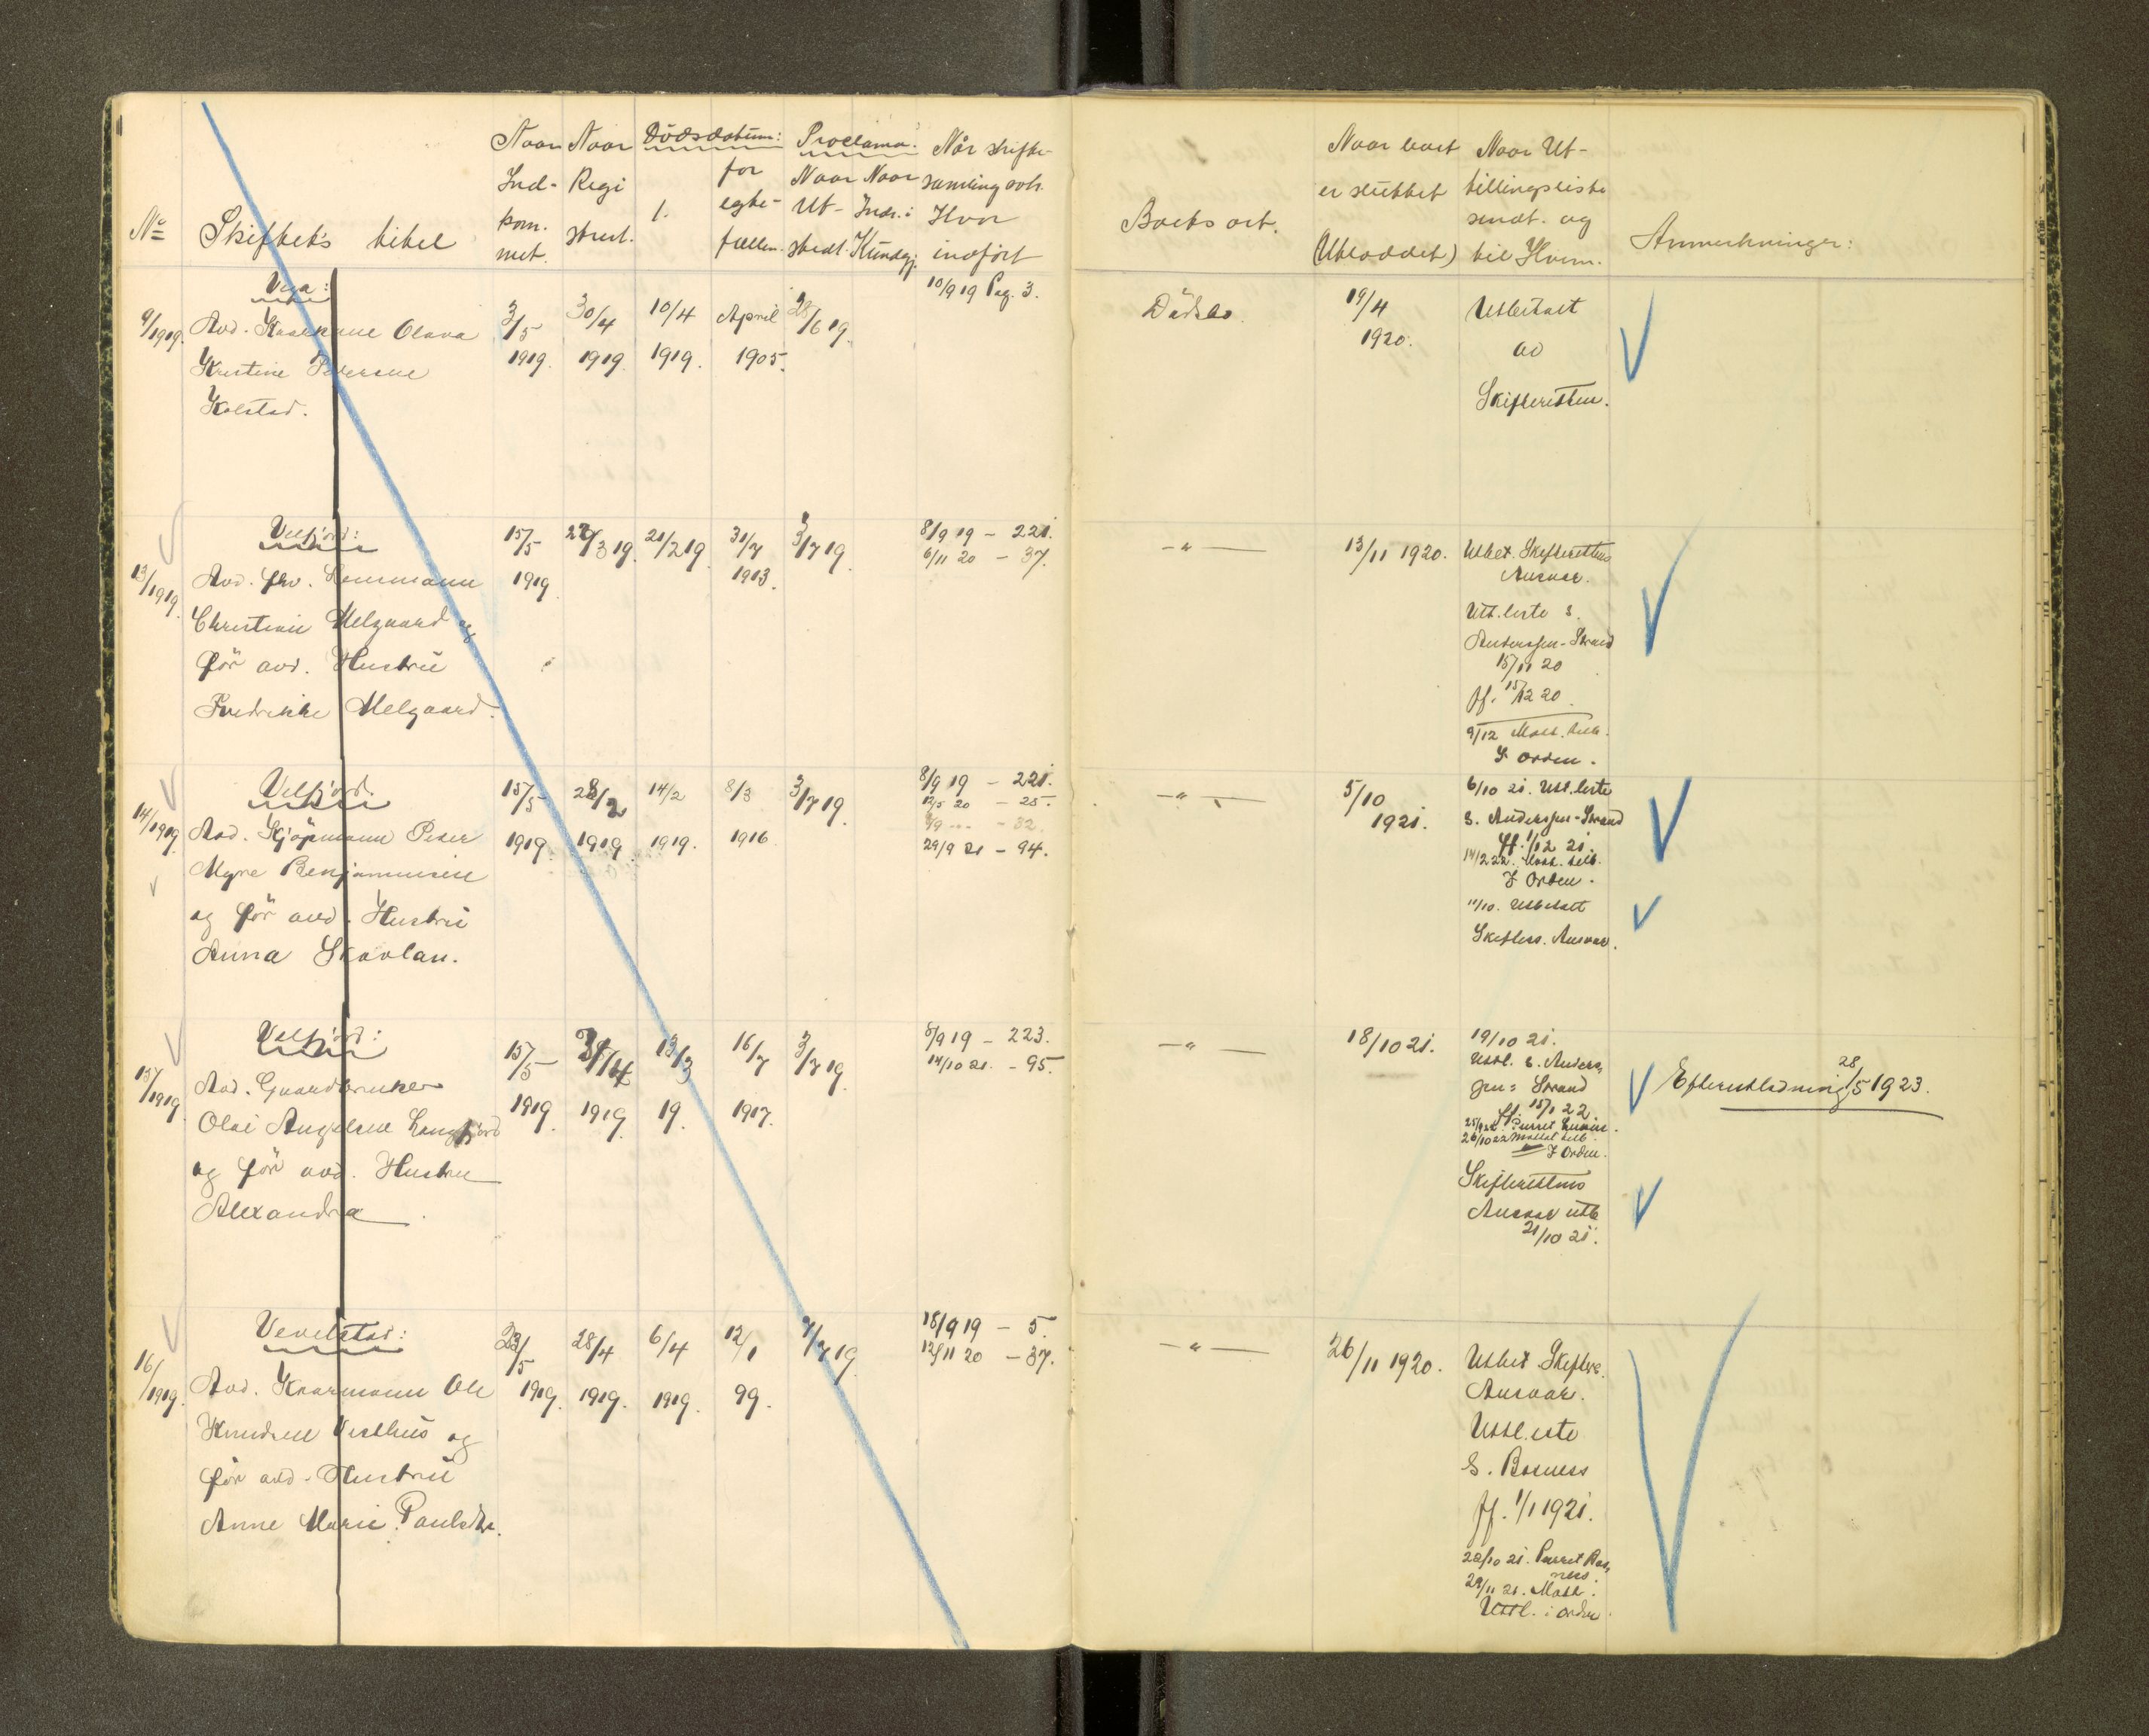 Nº
Skiftets titel
Naar Ind- kom- met.
Naar Regi strert.
Dødsdatum:
1.
for egte- fællen.
Proclama:
Naar Ut- stedt.
Naar Indr. i Kundgj.
Når skifte- samling avh. Hvor indført
Boets art.
Naar boet er sluttet (Utloddet)
Naar Ut- tillingsliste sendt. og til Hvem.
Anmerkninger:
Vega:
9/1919.
Avd. Olava
Kristine Pedersen
Kolstad.
3/5 1919.
30/4 1919.
10/4 1919.
April 1905.
28/6 19.
10/9 19 Pag. 3.
Dødsbo.
19/4 1920.
Utbetalt
av
Skifteretten.
Velfjord:
13/1919.
Avd. fhv. Lensmann
Christian Melgaard og
før avd. Hustru
Fredrikke Melgaard.
15/5 1919
29/3 19.
21/2 19
31/7 1913.
3/7 19.
8/9 19 - 221.
6/11 20 - 37.
-"-
13/11 1920.
Utbet. Skifterettens
Ansvar.
Utl. liste s.
Anderssen-Strand
15/11 20
ff. 15/12 20.
9/12 Mott. tilb.
I orden.
Velfjord.
14/1919.
Avd. Kjøpmann Peder
Myre Benjaminsen
og før avd. Hustru
Anna Skovlan.
15/5 1919.
28/2 1919.
14/2 1919.
8/3 1916
3/7 19.
8/9 19 - 221.
12/5 20 - 25.
- 32.
29/9 21 - 94.
-"-
5/10 1921.
6/10 21. Utl. liste
s. Anderssen-Strand
ff. 1/12 21.
14/2 22. Mott. tilb.
I Orden.
11/10. Utbetalt
Skifters. Ansvar.
Velfjord:
15/1919.
Avd. Gaardbruker
Olai Angelsen Langfjord
og før avd. Hustru
Alexandra
15/5 1919.
1919.
13/3 19.
16/7 1917.
3/7 19.
8/9 19 - 223.
14/10 21. - 95.
-"-
18/10 21.
19/10 21.
Utl. s. Anders,
sen: Strand
ff. 15/1 22.
26/10 22 Mottat tilb.
I Orden.
Skifterettens
Ansvar utb
21/10 21.
Efterutlodning 28/5 1923.
Vevelstad:
16/1919.
Avd. Kaarmann Ole
Knudsen Vesthus og
før avd. Hustru
Anne Marie Paulsdtr.
23/5 1919.
28/4 1919.
6/4 1919.
12/1 99.
7/7 19.
18/9 19 - 5.
12/11 20 - 37.
-"-
26/11 1920.
Utbet Skiftere.
Ansvar.
Utl. liste
s. Bosness
ff. 1/1 1921.
22/10 21. Purret Bos,
ness.
29/11 21. Mott.
Utl. i orden